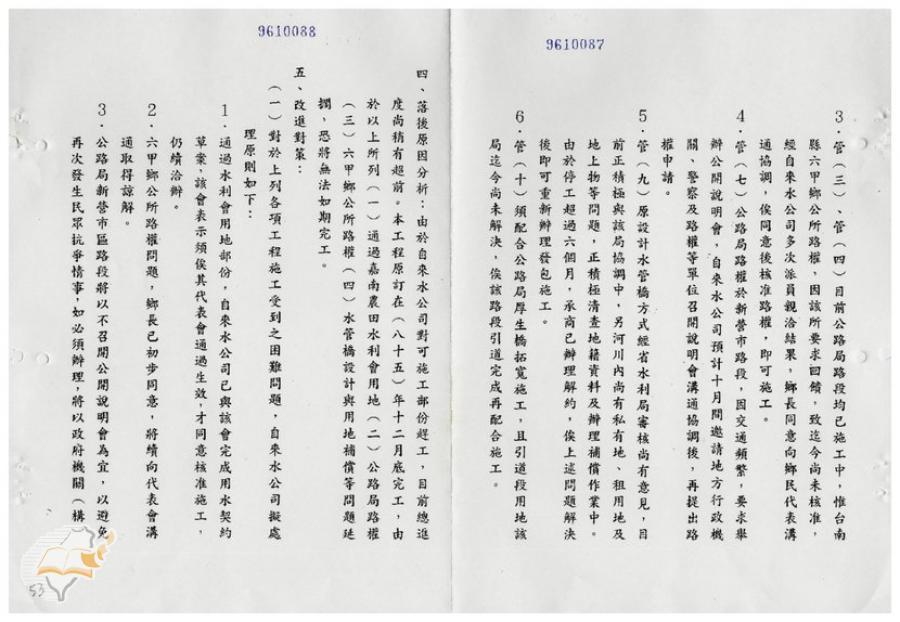 9610087
3．管（三）、管（四）目前公路局路段均已施工中，惟台南
縣六甲鄉公所路權，因該所要求回饋，致迄今尚未核准，
經自來水公司多次派員親洽結果，鄉長同意向鄉民代表溝
通協調，俟同意後核准路權，即可施工。
4．管（七）公路局路權於新營市路段，因交通頻繁，要求舉
辦公開說明會，自來水公司預計十月間邀請地方行政機
關、警察及路權等單位召開說明會溝通協調後，再提出路
權申請。
5．管（九）原設計水管橋方式經省水利局審核尚有意見，目
前正積極與該局協調中，另河川內尚有私有地、租用地及
地上物等問題，正積極清查地籍資料及辦理補償作業中。
由於停工超過六個月，承商已辦理解約，俟上述問題解決
後即可重新辦理發包施工。
6．管（十）須配合公路局厚生橋拓寬施工，且引道段用地該
局迄今尚未解決，俟該路段引道完成再配合施工。
9610088
四、落後原因分析：由於自來水公司對可施工部份趕工，目前總進
度尚稍有超前。本工程原訂在（八十五）年十二月底完工，由
於以上所列（一）通過嘉南農田水利會用地（二）公路局路權
（三）六甲鄉公所路權（四）水管橋設計與用地補償等問題延
擱，恐將無法如期完工。
五、改進對策：
（一）對於上列各項工程施工受到之困難問題，自來水公司擬處
理原則如下：
1．通過水利會用地部份，自來水公司已與該會完成用水契約
草案，該會表示須俟其代表會通過生效，才同意核准施工，
仍續洽辦。
2．六甲鄉公所路權問題，鄉長已初步同意，將續向代表會溝
通取得諒解。
3．公路局新營市區路段將以不召開公開說明會為宜，以避免
再次發生民眾抗爭情事，如必須辦理，將以政府機關（構
53